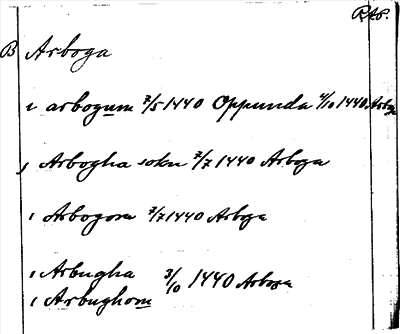 RAP.
B Arboga
i arbogum 7/5 1440 Oppunda 4/10 1440 Arboga
i Arbogha sokn 7/7 1440 Arboga
i Arbogom 7/7 1440 Arboga
i Arbugha 3/10 1440 Arboga
i Arbughom